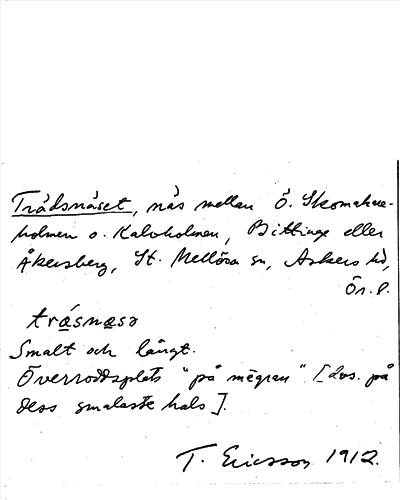 Trädsnäset, näs mellan Ö. Skomakare-
holmen o. Kalvholmen, Bittinge eller
Åkersberg, St. Mellösa sn, Askers hd,
Ör. l.
träsnasə
Smalt och långt.
Överroddsplats "på mēgran" [dvs. på
dess smalaste hals].
T. Ericsson 1912.